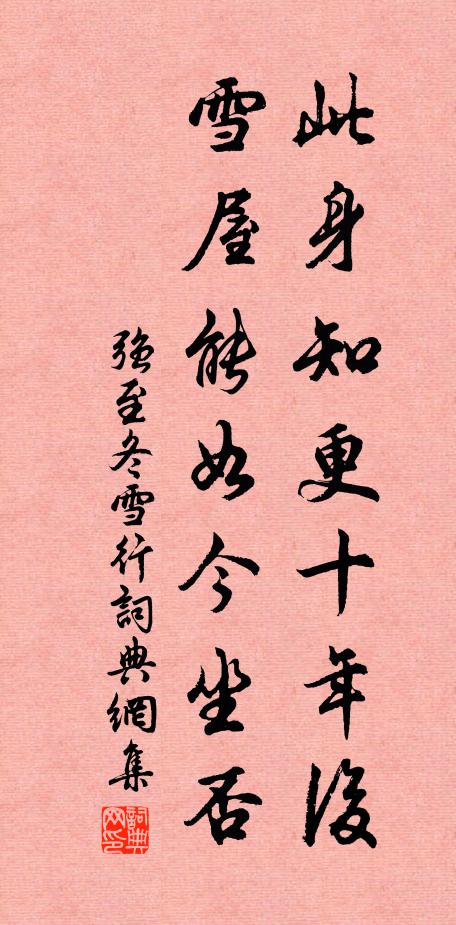 此身知更十年後
雪屋能如今坐否
強至冬雪行詞典網集
詞典網印